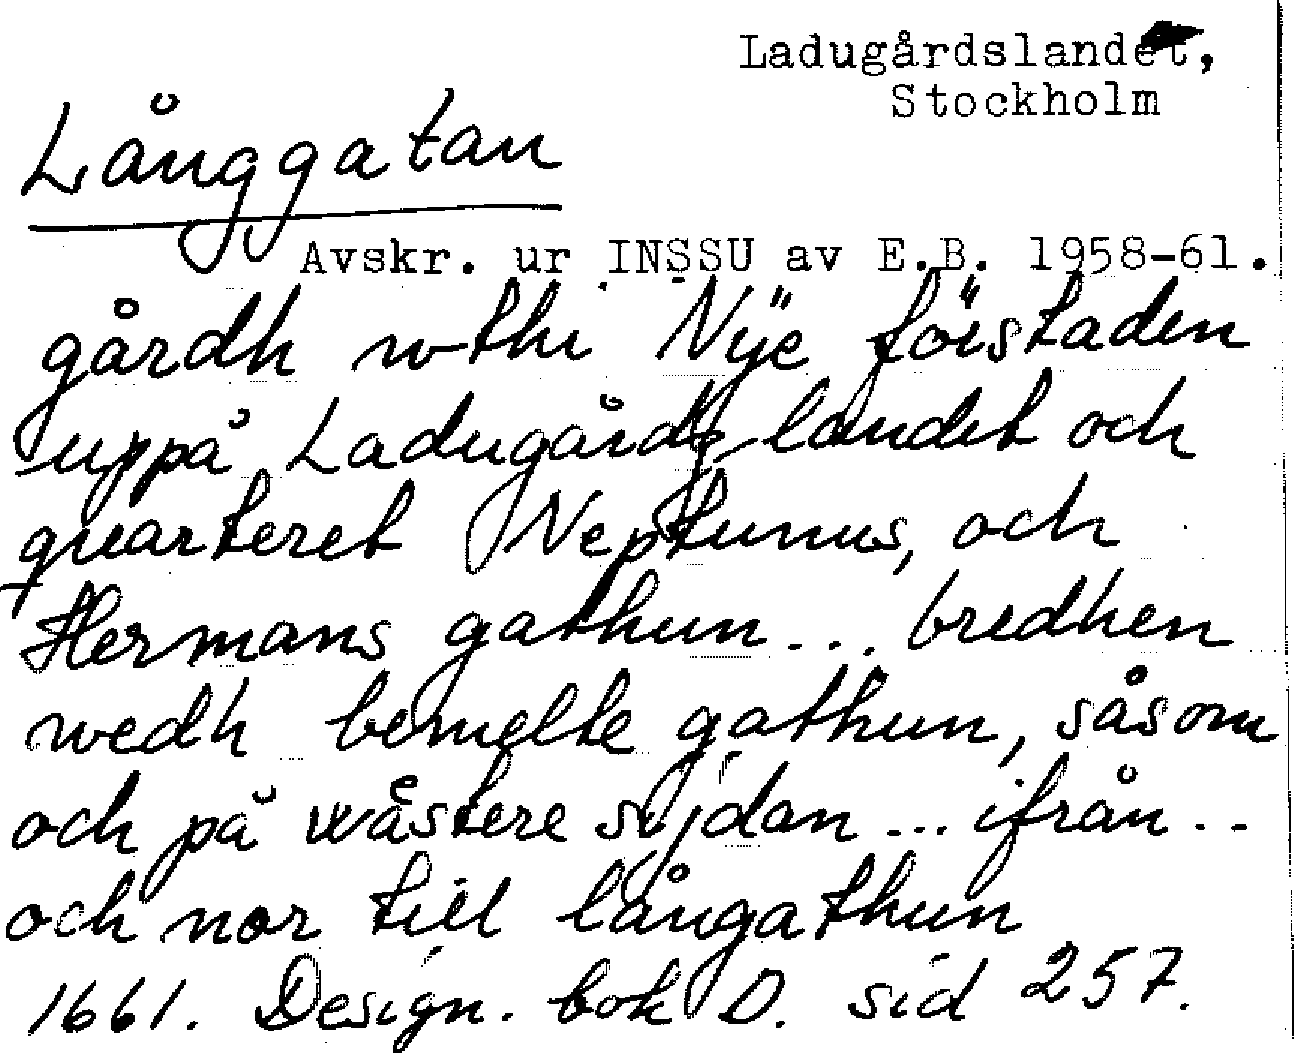 Ladugårdslandet,
Stockholm
Långgatan
Avskr. ur INSSU av E.B. 1958-61.
gårdh wthi Nÿe förstaden
uppå Ladugårdz landet och
quarteret Neptunus, och
Hermans gathun... bredhen
wedh bemelte gathun, såsom
och på wåstere sijdan... ifrån..
och nor till långathun
1661. Design. bok D. sid 257.